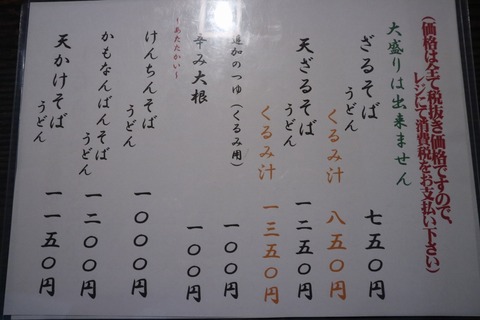 (価格は全て税抜き価格ですので、
レジにて消費税をお支払い下さい)
大盛りは出来ません
ざるそば 七五〇円
うどん
くるみ汁 八五〇円
天ざるそば 一二五〇円
うどん
くるみ汁 一三五〇円
追加のつゆ(くるみ用) 一〇〇円
辛み大根 一〇〇円
~あたたかい~
けんちんそば 一〇〇〇円
うどん
かもなんばんそば 一二〇〇円
うどん
天かけそば 一一五〇円
うどん